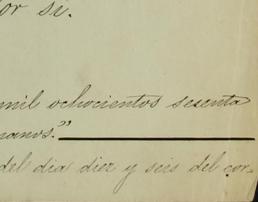 or si.
mil ochocientos sesenta
manos."
del dia diez y seis del cor-